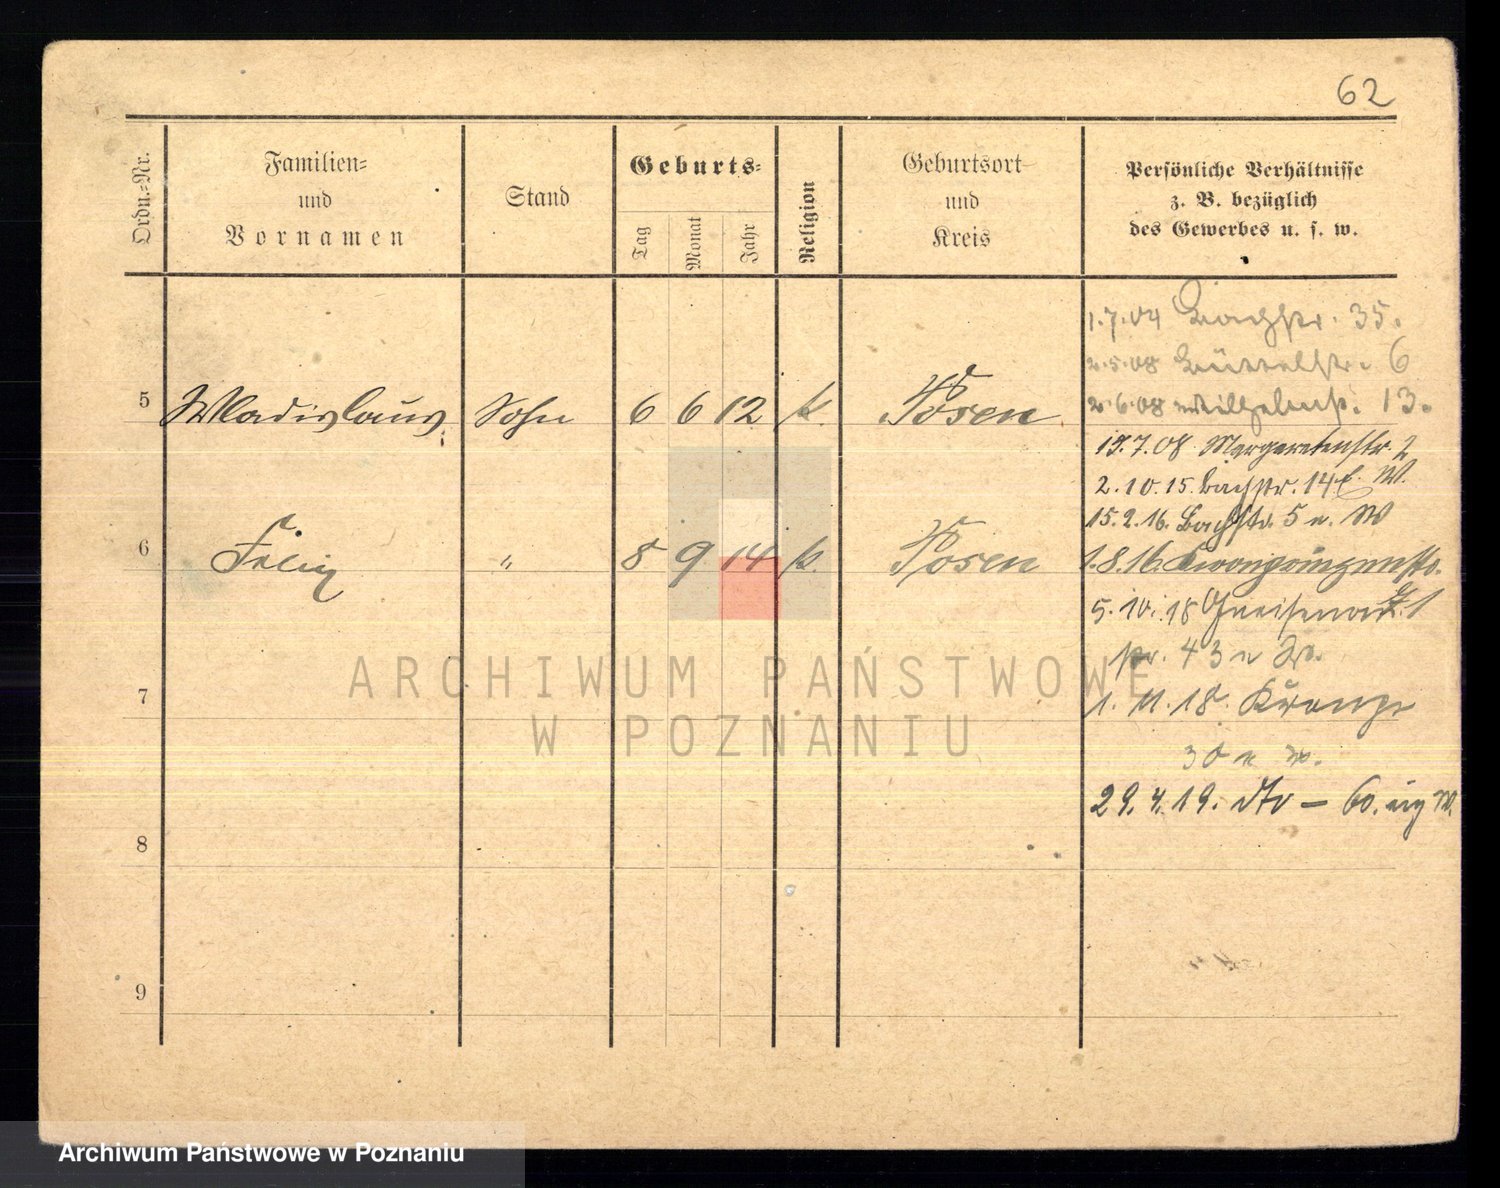 62
Ordn.=Nr.
Familien=
und
Vornamen
Stand
Geburts=
Tag
Monat
Jahr
Religion
Geburtsort
und
Kreis
Persönliche Verhältnisse
z. B. bezüglich
des Gewerbes u. s. w.
1.7.04 Bachstr. 35.
2.5.08 Büttelstr. 6
2.6.08 Wilhelmstr. 13.
5 Wladislaus, Sohn 6 6 12 k. Posen
17.7.08 Margaretenstr. 2
2.10.15. Bachstr. 14 W.
15.2.16. Bachstr. 5 n. W
6 Felix " 8 9 14 k. Posen
1.8.16. Kronprinzenstr.
5.10.18 Gneisenau
str. 43 n W.
7
1.11.18. Kronpr
30 n W.
29.4.19. dto – 60. W.
8
9
ARCHIWUM PAŃSTWOWE
W POZNANIU
Archiwum Państwowe w Poznaniu